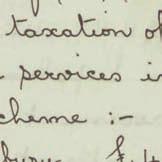 taxation of
services in
cheme :-